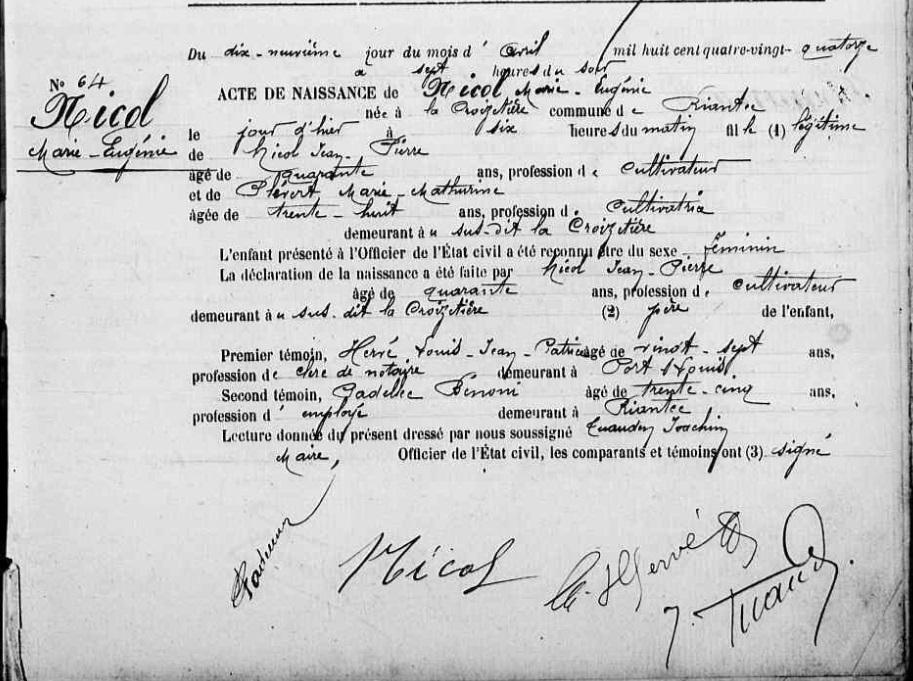 Du dix-neuvième jour du mois d'avril mil huit cent quatre-vingt-quatorze
à sept heures du soir
N° 64
Nicol
Marie-Eugénie
ACTE DE NAISSANCE de Nicol Marie-Eugénie
née à la Croizetière commune de Riantec
le jour d'hier à six heures du matin fille (1) légitime
de Nicol Jean-Pierre
âgé de quarante ans, profession de cultivateur
et de Plévert Marie-Mathurine
âgée de trente-huit ans, profession de cultivatrice
demeurant au sus-dit la Croizetière
L'enfant présenté à l'Officier de l'État civil a été reconnu être du sexe féminin
La déclaration de la naissance a été faite par Nicol Jean-Pierre
âgé de quarante ans, profession de cultivateur
demeurant au sus-dit la Croizetière (2) père de l'enfant,
Premier témoin, Hervé Louis-Jean-Patrice âgé de vingt-sept ans,
profession de clerc de notaire demeurant à Port-Louis
Second témoin, Gadellec Benoni âgé de trente-cinq ans,
profession d'employé demeurant à Riantec
Lecture donnée du présent dressé par nous soussigné Joachim
Maire, Officier de l'État civil, les comparants et témoins ont (3) signé
Nicol
Hervé